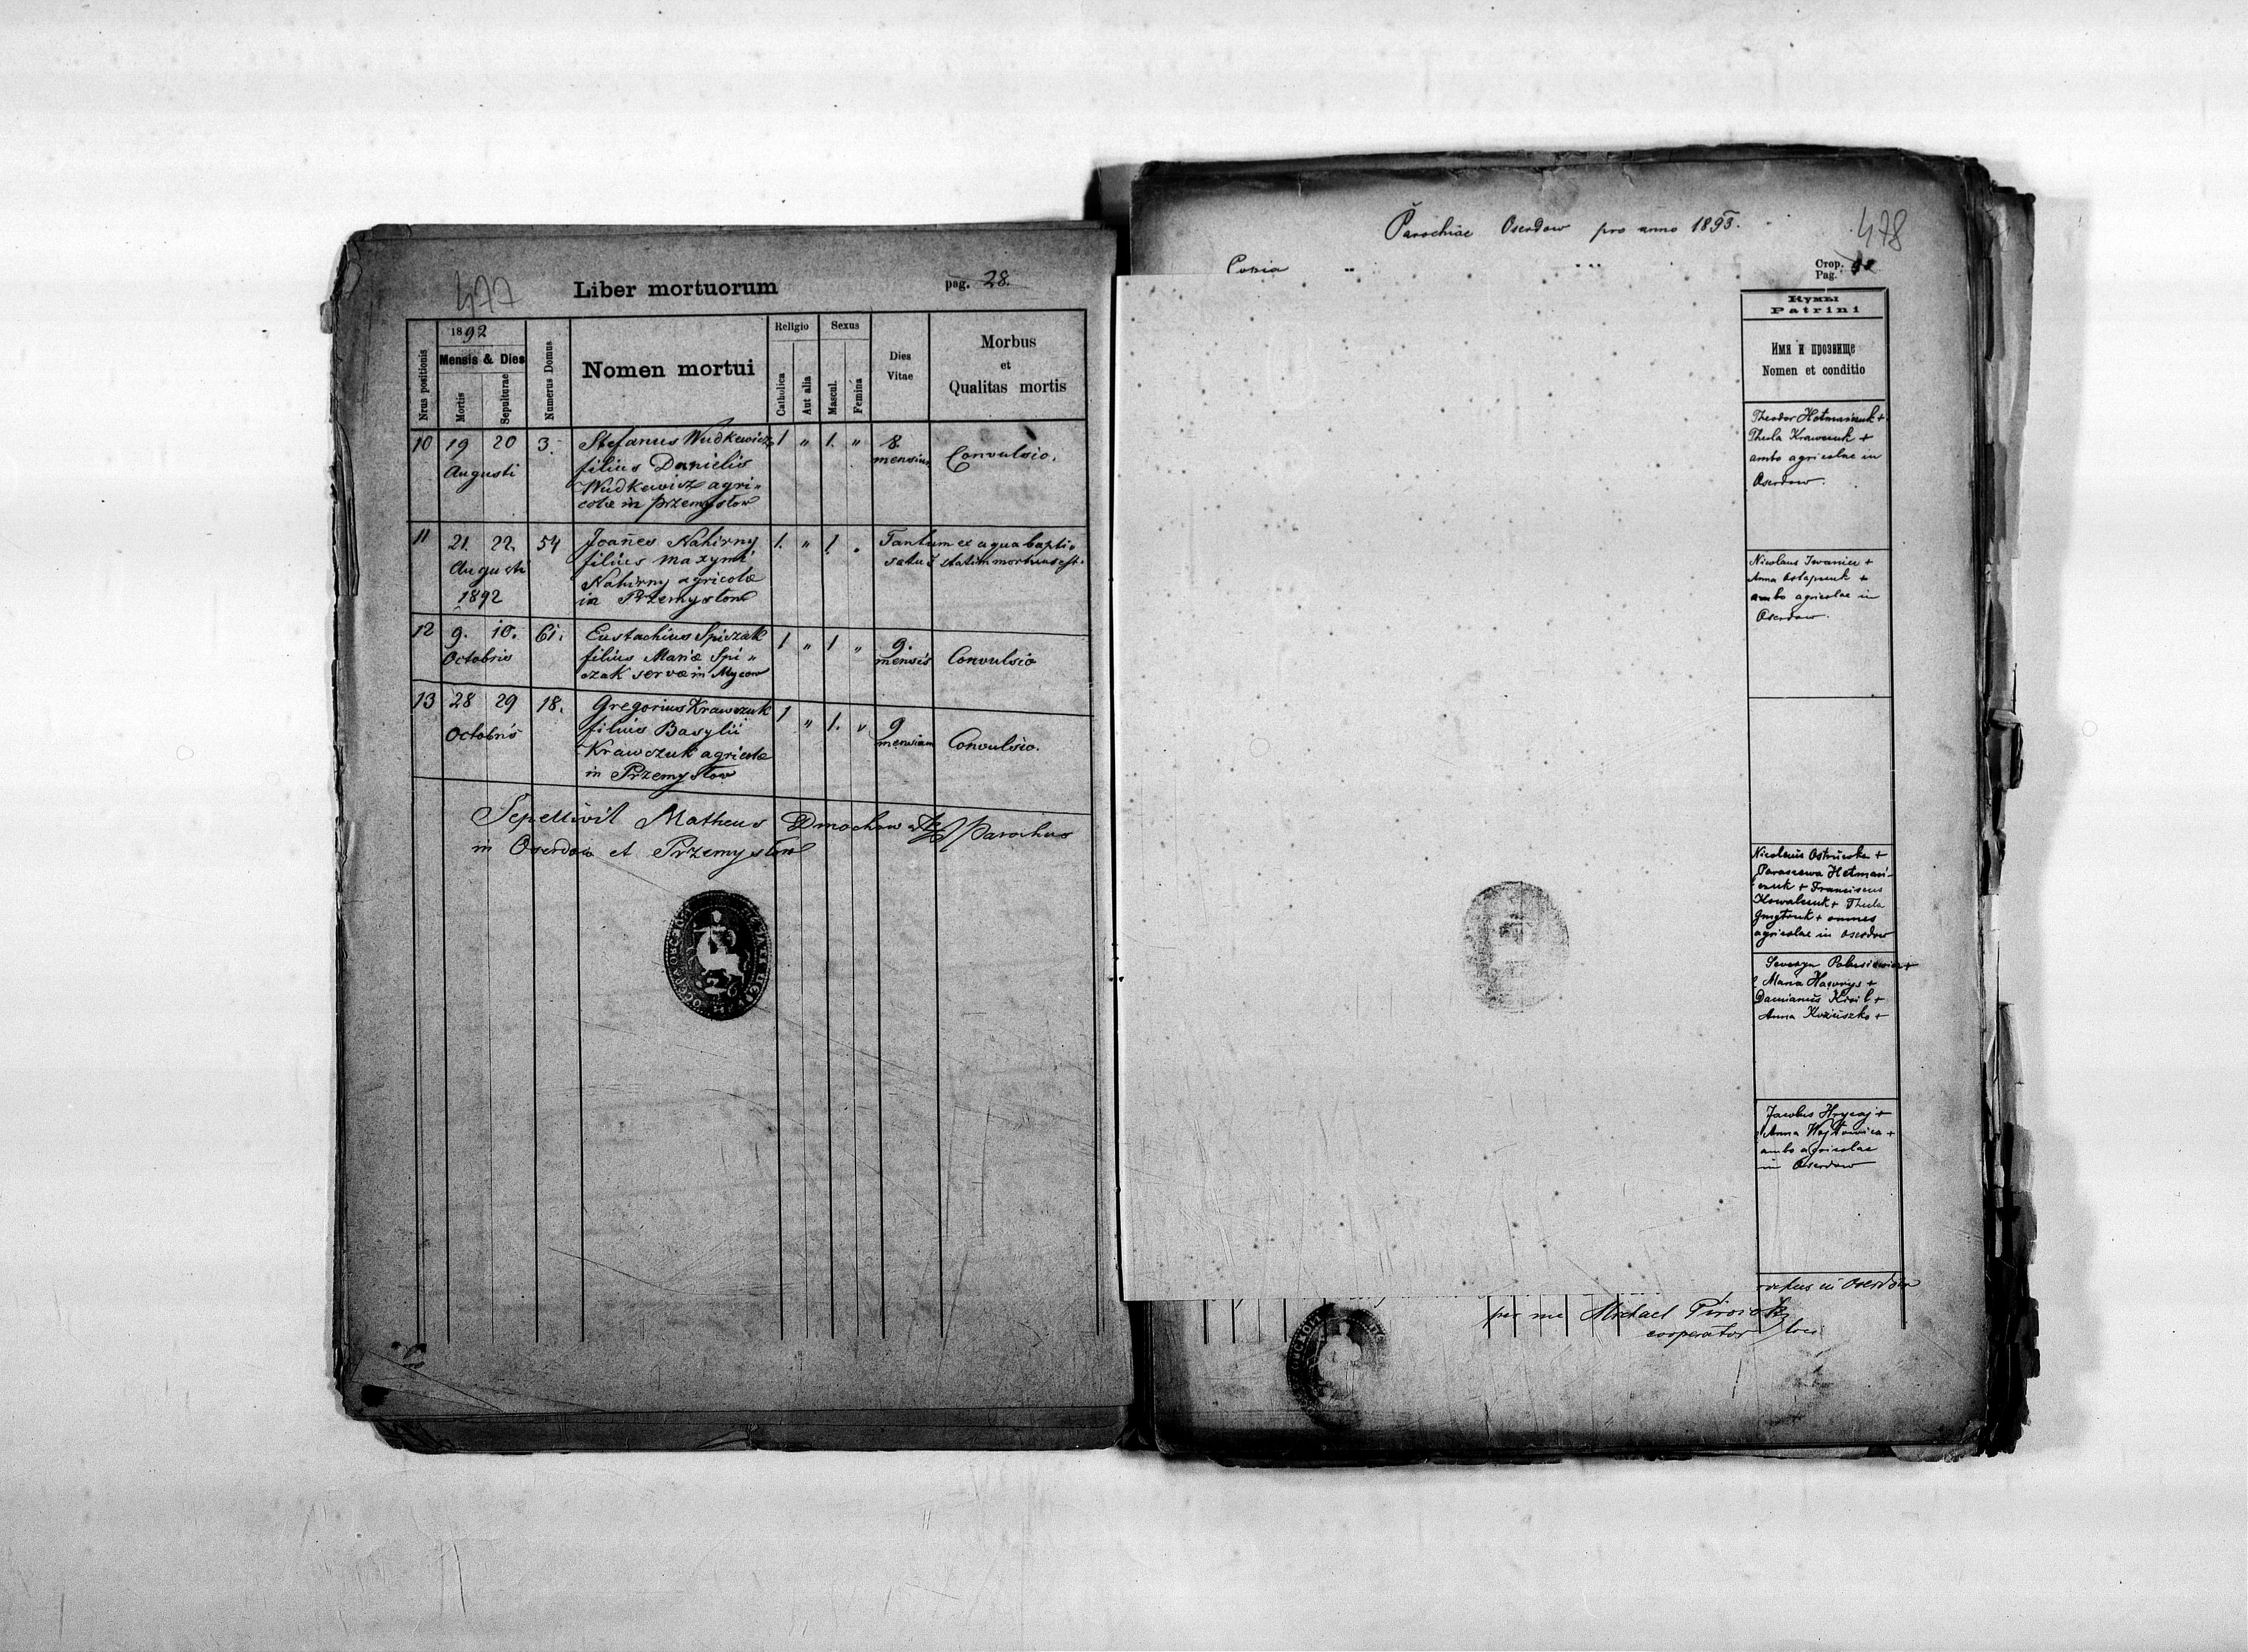 477
Liber mortuorum
pag. 28.
Nrus positionis
1892
Mensis & Dies
Mortis
Sepulturae
Numerus Domus
Nomen mortui
Religio
Catholica
Aut alia
Sexus
Mascul.
Femina
Dies
Vitae
Morbus
et
Qualitas mortis
10 19 20 3. Stefanus Wudkewicz 1 " 1. " 8. Convulsio.
Augusti filius Danielis mensium
Wudkewicz agri"
colae in Przemysłow
11 21. 22. 54 Joañes Nahirny 1. " 1. Tantum ex aqua bapti"
Augusti filius Maxymi satus statim mortuus est.
1892 Nahirny agricolae
in Przemysłow
12 9. 10. 61. Eustachius Spiszak 1 " 1 " 9. Convulsio
Octobris filius Mariæ Spi" mensis
szak servæ in Mycow
13 28 29 18. Gregorius Krawczuk 1 " 1. " 9 Convulsio.
Octobris filius Basylii mensium
Krawczuk agricolæ
in Przemysłow
Sepelivit Matheus Parochus
in Oserdow et Przemysłow
Parochiae Oserdow pro anno 1893.
478
Copia " "
Стор.
Pag.
Кумы
Patrini
Имя и прозвище
Nomen et conditio
Theodor +
Thecla Krawczuk +
ambo agricolae in
Oserdow.
Nicolaus Iwaniec +
Anna Ostapczuk +
ambo agricolae in
Oserdow.
Nicolaus +
Parascewa Hetmań-
czuk + Franciscus
Kowalczuk + Thecla
+ omnes
agricolae in Oserdow
Seweryn
Maria +
Damianus +
Anna +
Jacobus Hrycaj +
Anna Wojtowicz +
ambo agricolae
in Oserdow
in Oserdow
per me Michael
cooperator loci